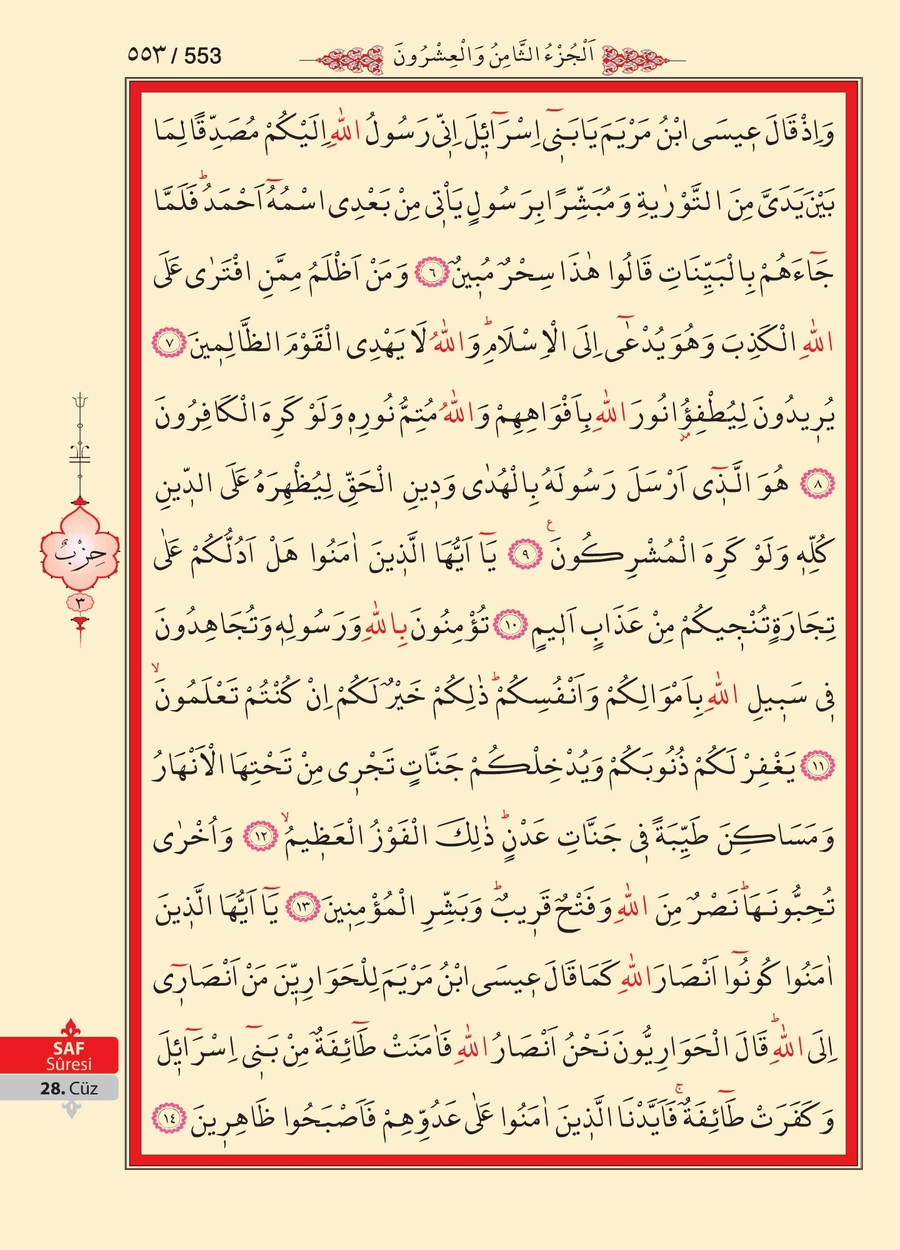 ٥٥٣ / 553
اَلْجُزْءُ الثَّامِنُ وَالْعِشْرُونَ
وَاِذْ قَالَ ع۪يسَى ابْنُ مَرْيَمَ يَا بَن۪ٓي اِسْرَٓائ۪لَ اِنّ۪ي رَسُولُ اللّٰهِ اِلَيْكُمْ مُصَدِّقًا لِمَا
بَيْنَ يَدَيَّ مِنَ التَّوْرٰيةِ وَمُبَشِّرًا بِرَسُولٍ يَأْت۪ي مِنْ بَعْدِي اسْمُهُٓ اَحْمَدُۜ فَلَمَّا
جَٓاءَهُمْ بِالْبَيِّنَاتِ قَالُوا هٰذَا سِحْرٌ مُب۪ينٌ ٦ وَمَنْ اَظْلَمُ مِمَّنِ افْتَرٰى عَلَى
اللّٰهِ الْكَذِبَ وَهُوَ يُدْعٰٓى اِلَى الْاِسْلَامِۜ وَاللّٰهُ لَا يَهْدِي الْقَوْمَ الظَّالِم۪ينَ ٧
يُر۪يدُونَ لِيُطْفِؤُ۫ا نُورَ اللّٰهِ بِاَفْوَاهِهِمْ وَاللّٰهُ مُتِمُّ نُورِه۪ وَلَوْ كَرِهَ الْكَافِرُونَ
٨ هُوَ الَّذ۪ٓي اَرْسَلَ رَسُولَهُ بِالْهُدٰى وَد۪ينِ الْحَقِّ لِيُظْهِرَهُ عَلَى الدّ۪ينِ
كُلِّه۪ وَلَوْ كَرِهَ الْمُشْرِكُونَ۟ ٩ يَٓا اَيُّهَا الَّذ۪ينَ اٰمَنُوا هَلْ اَدُلُّكُمْ عَلٰى
تِجَارَةٍ تُنْج۪يكُمْ مِنْ عَذَابٍ اَل۪يمٍ ١٠ تُؤْمِنُونَ بِاللّٰهِ وَرَسُولِه۪ وَتُجَاهِدُونَ
ف۪ي سَب۪يلِ اللّٰهِ بِاَمْوَالِكُمْ وَاَنْفُسِكُمْۜ ذٰلِكُمْ خَيْرٌ لَكُمْ اِنْ كُنْتُمْ تَعْلَمُونَۙ
١١ يَغْفِرْ لَكُمْ ذُنُوبَكُمْ وَيُدْخِلْكُمْ جَنَّاتٍ تَجْر۪ي مِنْ تَحْتِهَا الْاَنْهَارُ
وَمَسَاكِنَ طَيِّبَةً ف۪ي جَنَّاتِ عَدْنٍۜ ذٰلِكَ الْفَوْزُ الْعَظ۪يمُۙ ١٢ وَاُخْرٰى
تُحِبُّونَهَاۜ نَصْرٌ مِنَ اللّٰهِ وَفَتْحٌ قَر۪يبٌۜ وَبَشِّرِ الْمُؤْمِن۪ينَ ١٣ يَٓا اَيُّهَا الَّذ۪ينَ
اٰمَنُوا كُونُٓوا اَنْصَارَ اللّٰهِ كَمَا قَالَ ع۪يسَى ابْنُ مَرْيَمَ لِلْحَوَارِيّ۪نَ مَنْ اَنْصَار۪ٓي
اِلَى اللّٰهِۜ قَالَ الْحَوَارِيُّونَ نَحْنُ اَنْصَارُ اللّٰهِ فَاٰمَنَتْ طَٓائِفَةٌ مِنْ بَن۪ٓي اِسْرَٓائ۪لَ
وَكَفَرَتْ طَٓائِفَةٌۚ فَاَيَّدْنَا الَّذ۪ينَ اٰمَنُوا عَلٰى عَدُوِّهِمْ فَاَصْبَحُوا ظَاهِر۪ينَ ١٤
حِزْبٌ
٣
SAF
Sûresi
28. Cüz